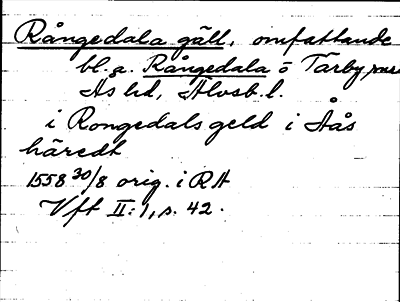 Rångedala gäll, omfattande
bl.a. Rångedala o Tärby, nu
As hd, Älvsb. l.
i Rongedals geld i Åås
häredt
1558 30/8 orig. i RA
Vft II:1, s. 42.